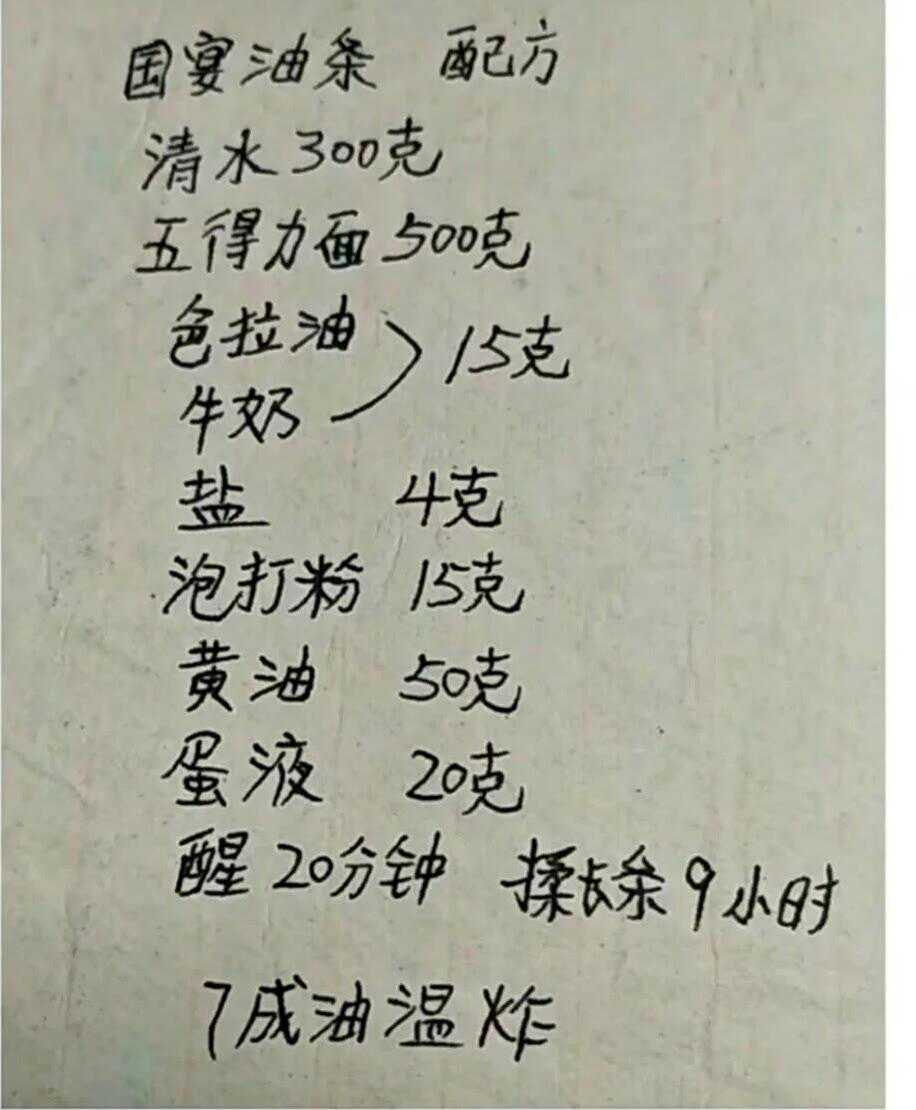 国宴油条 配方
清水300克
五得力面500克
色拉油
牛奶 15克
盐 4克
泡打粉 15克
黄油 50克
蛋液 20克
醒20分钟 揉长条9小时
7成油温炸